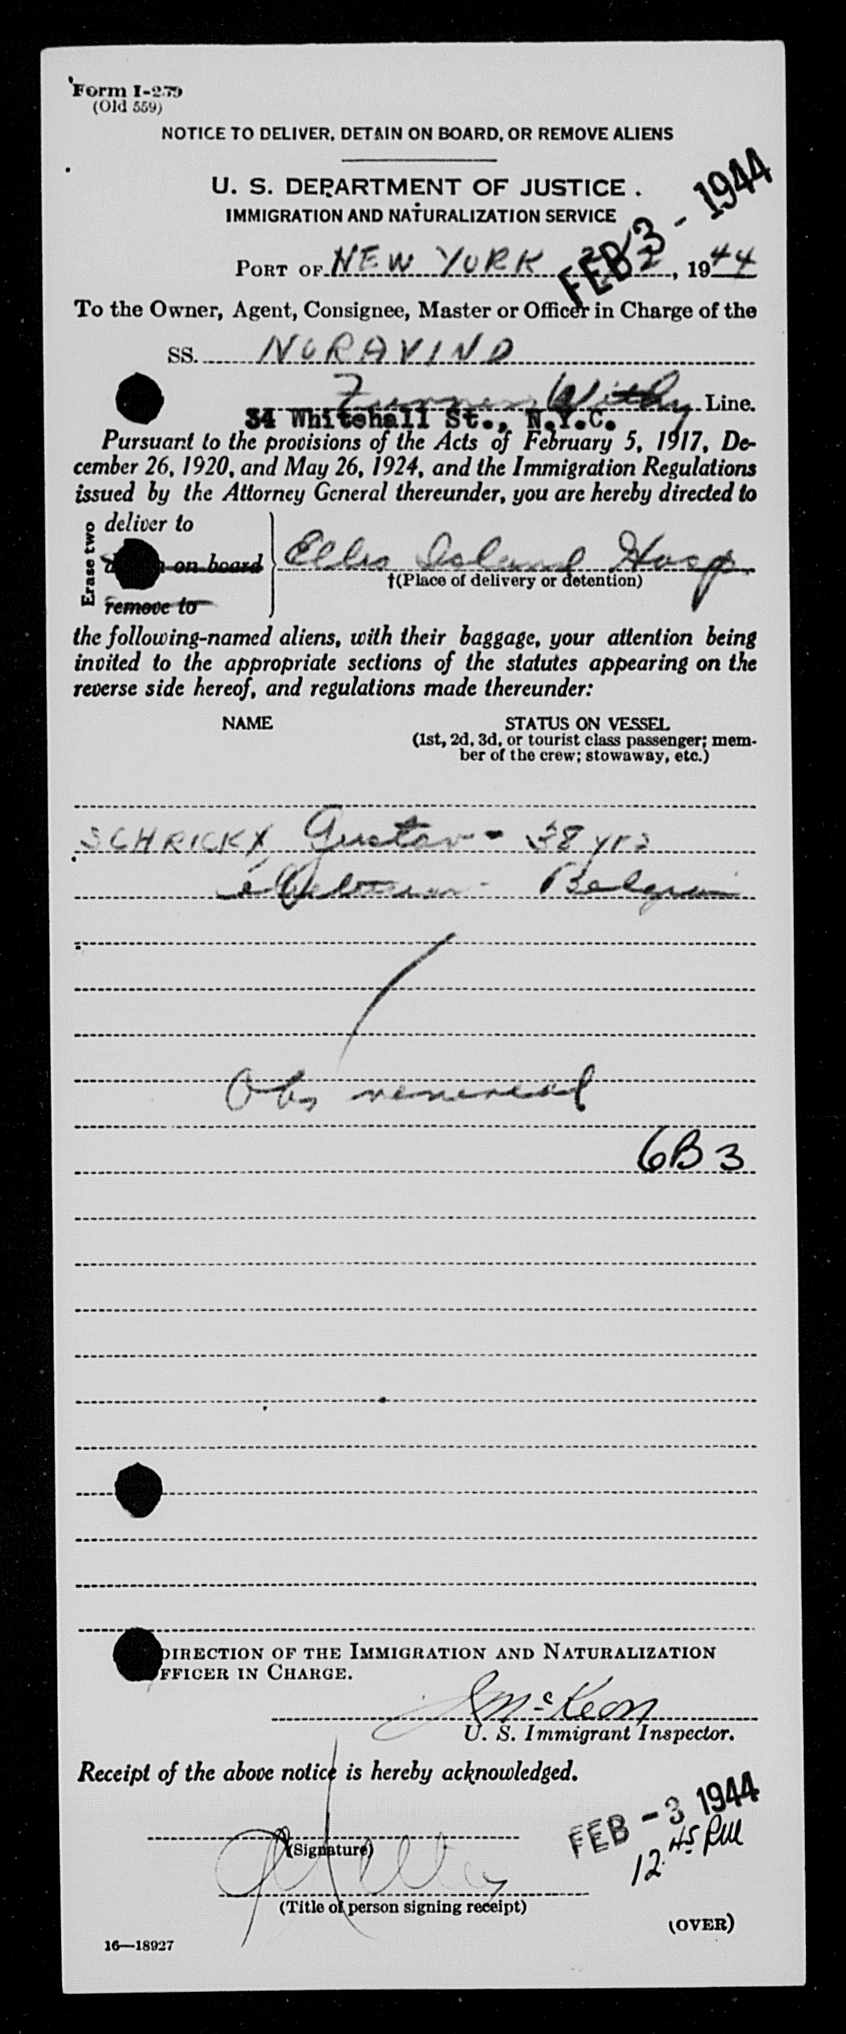 Form I-279
(Old 559)
NOTICE TO DELIVER, DETAIN ON BOARD, OR REMOVE ALIENS
U. S. DEPARTMENT OF JUSTICE
IMMIGRATION AND NATURALIZATION SERVICE
FEB 3 - 1944
PORT OF NEW YORK 2/2, 1944
To the Owner, Agent, Consignee, Master or Officer in Charge of the
SS. NORAVIND
Furness Withy Line.
34 Whitehall St., N.Y.C.
Pursuant to the provisions of the Acts of February 5, 1917, De-
cember 26, 1920, and May 26, 1924, and the Immigration Regulations
issued by the Attorney General thereunder, you are hereby directed to
Erase two
deliver to
on board
remove to
Ellis Island Hosp
†(Place of delivery or detention)
the following-named aliens, with their baggage, your attention being
invited to the appropriate sections of the statutes appearing on the
reverse side hereof, and regulations made thereunder:
NAME STATUS ON VESSEL
(1st, 2d, 3d, or tourist class passenger; mem-
ber of the crew; stowaway, etc.)
SCHRICKX Gustav - 38 yrs
Obs venereal
6B3
DIRECTION OF THE IMMIGRATION AND NATURALIZATION
OFFICER IN CHARGE.
McKeon
U. S. Immigrant Inspector.
Receipt of the above notice is hereby acknowledged.
FEB - 3 1944
12.45 PM
(Signature)
(Title of person signing receipt)
(OVER)
16—18927